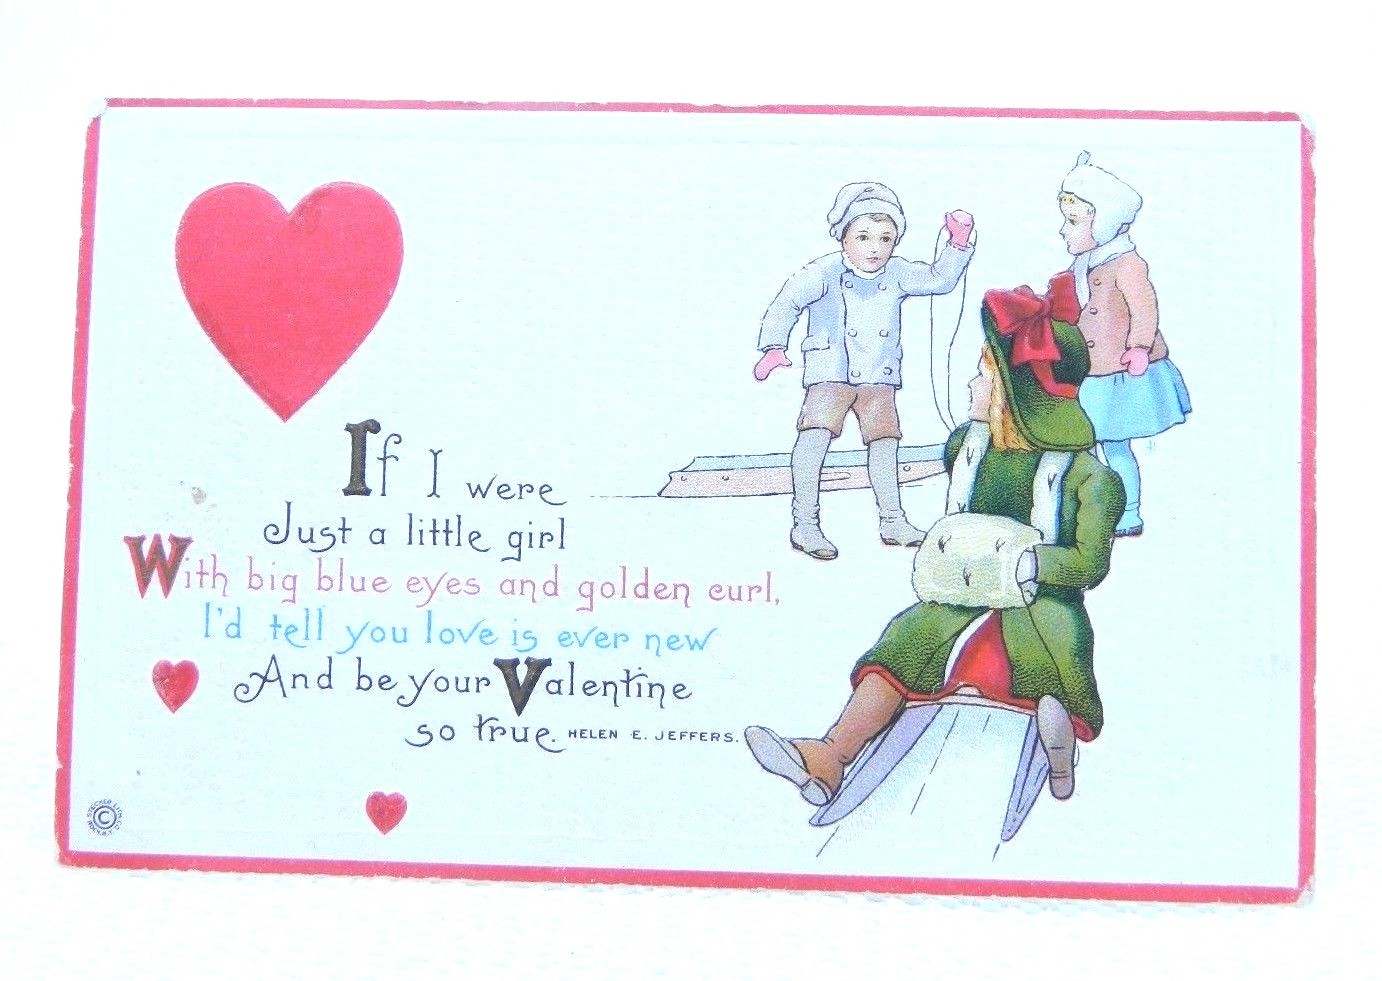 If I were
Just a little girl
With big blue eyes and golden curl,
I'd tell you love is ever new
And be your Valentine
so true. HELEN E. JEFFERS.
STECHER LITH. CO.
ROCH. N.Y.
©